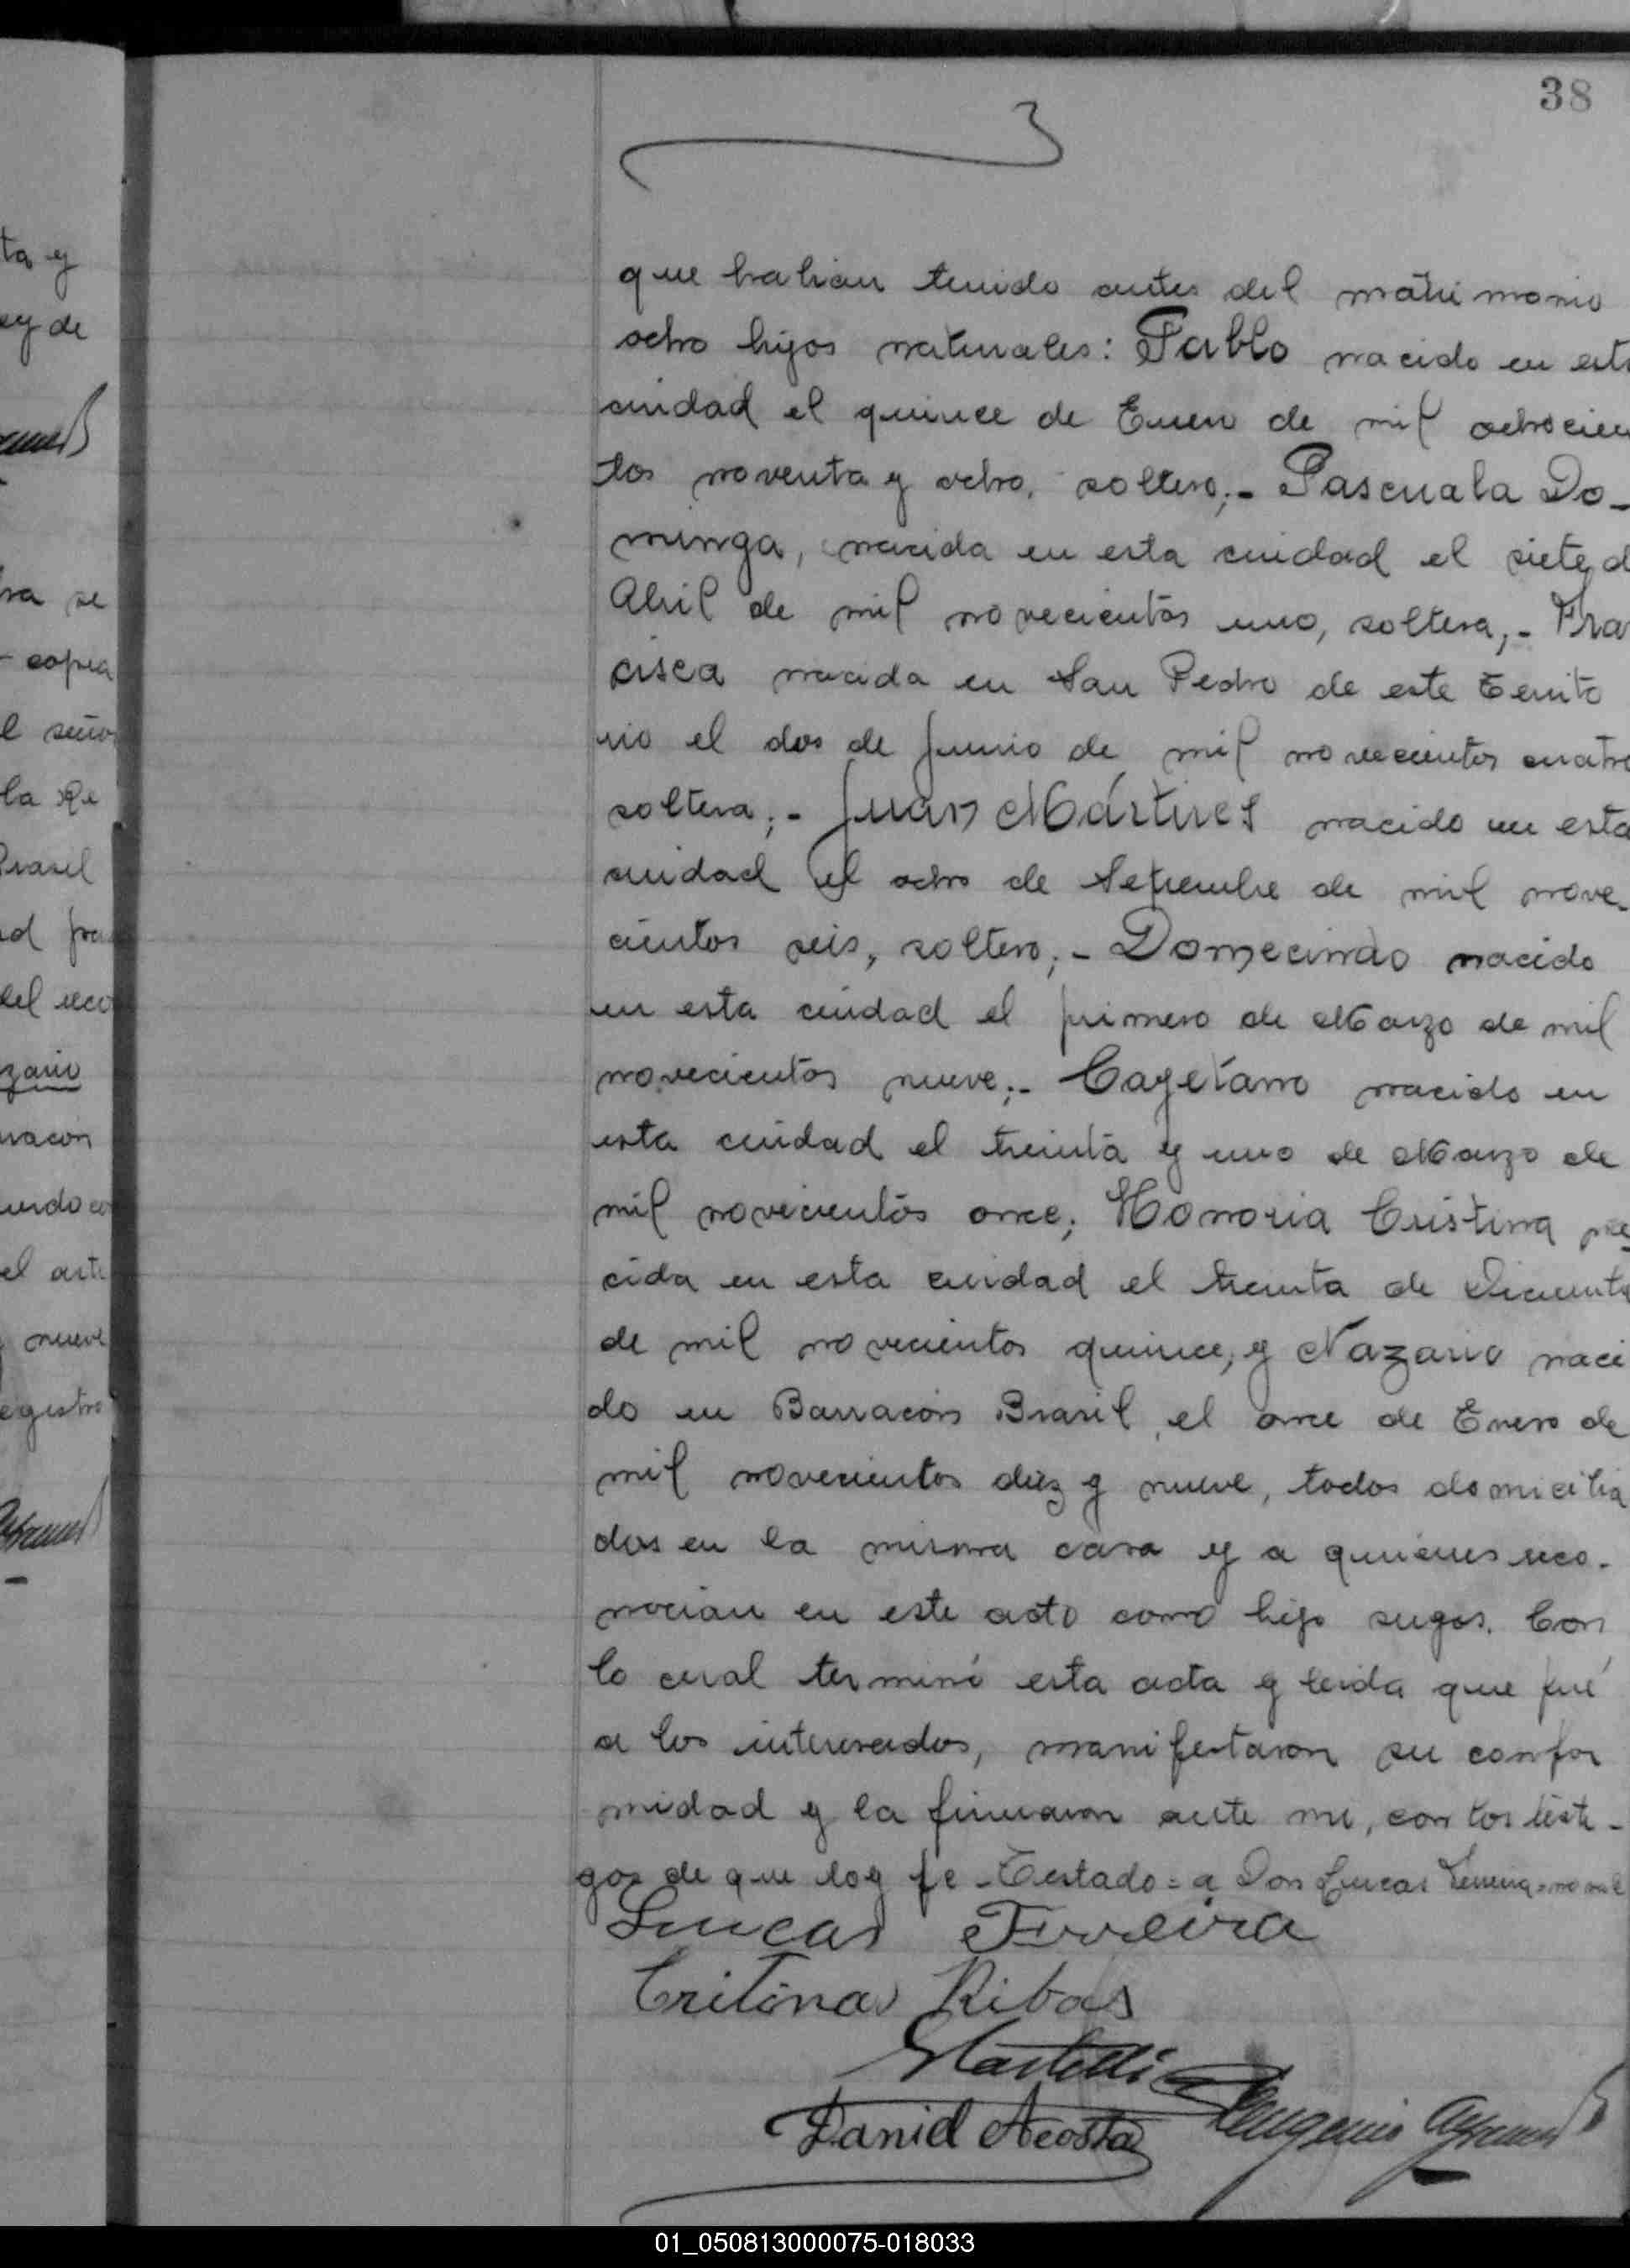 38
ta y
ey de
ra se
copia
l señor
la Re
Brasil
zario
racon
el arti
nueve
egistro
que habian tenido antes del matrimonio
ocho hijos naturales: Pablo nacido en esta
ciudad el quince de Enero de mil ochocien
tos noventa y ocho, soltero;- Pascuala Do-
minga, nacida en esta ciudad el siete d
Abril de mil novecientos uno, soltera,- Fran
cisca nacida en San Pedro de este Territo
rio el dos de Junio de mil novecientos cuatro
soltera;- Juan Mártires nacido en esta
ciudad el ocho de Setiembre de mil nove-
cientos seis, soltero;- Domecindo nacido
en esta ciudad el primero de Marzo de mil
novecientos nueve;- Cayetano nacido en
esta ciudad el treinta y uno de Marzo de
mil novecientos once; Honoria Cristina na
cida en esta ciudad el treinta de Diciembre
de mil novecientos quince, y Nazario naci
do en Barracon Brasil, el once de Enero de
mil novecientos diez y nueve, todos domicilia
dos en la misma casa y a quienes reco-
nocian en este acto como hijo suyos. Con
lo cual terminó esta acta y leida que fué
a los interesados, manifestaron su confor
midad y la firmaron ante mi, con los testi-
gos de que doy fe - Testado = a Don Lucas
Lucas Ferreira
Critina Ribas
Martelli
Daniel Acosta Eugenio
01_050813000075-018033